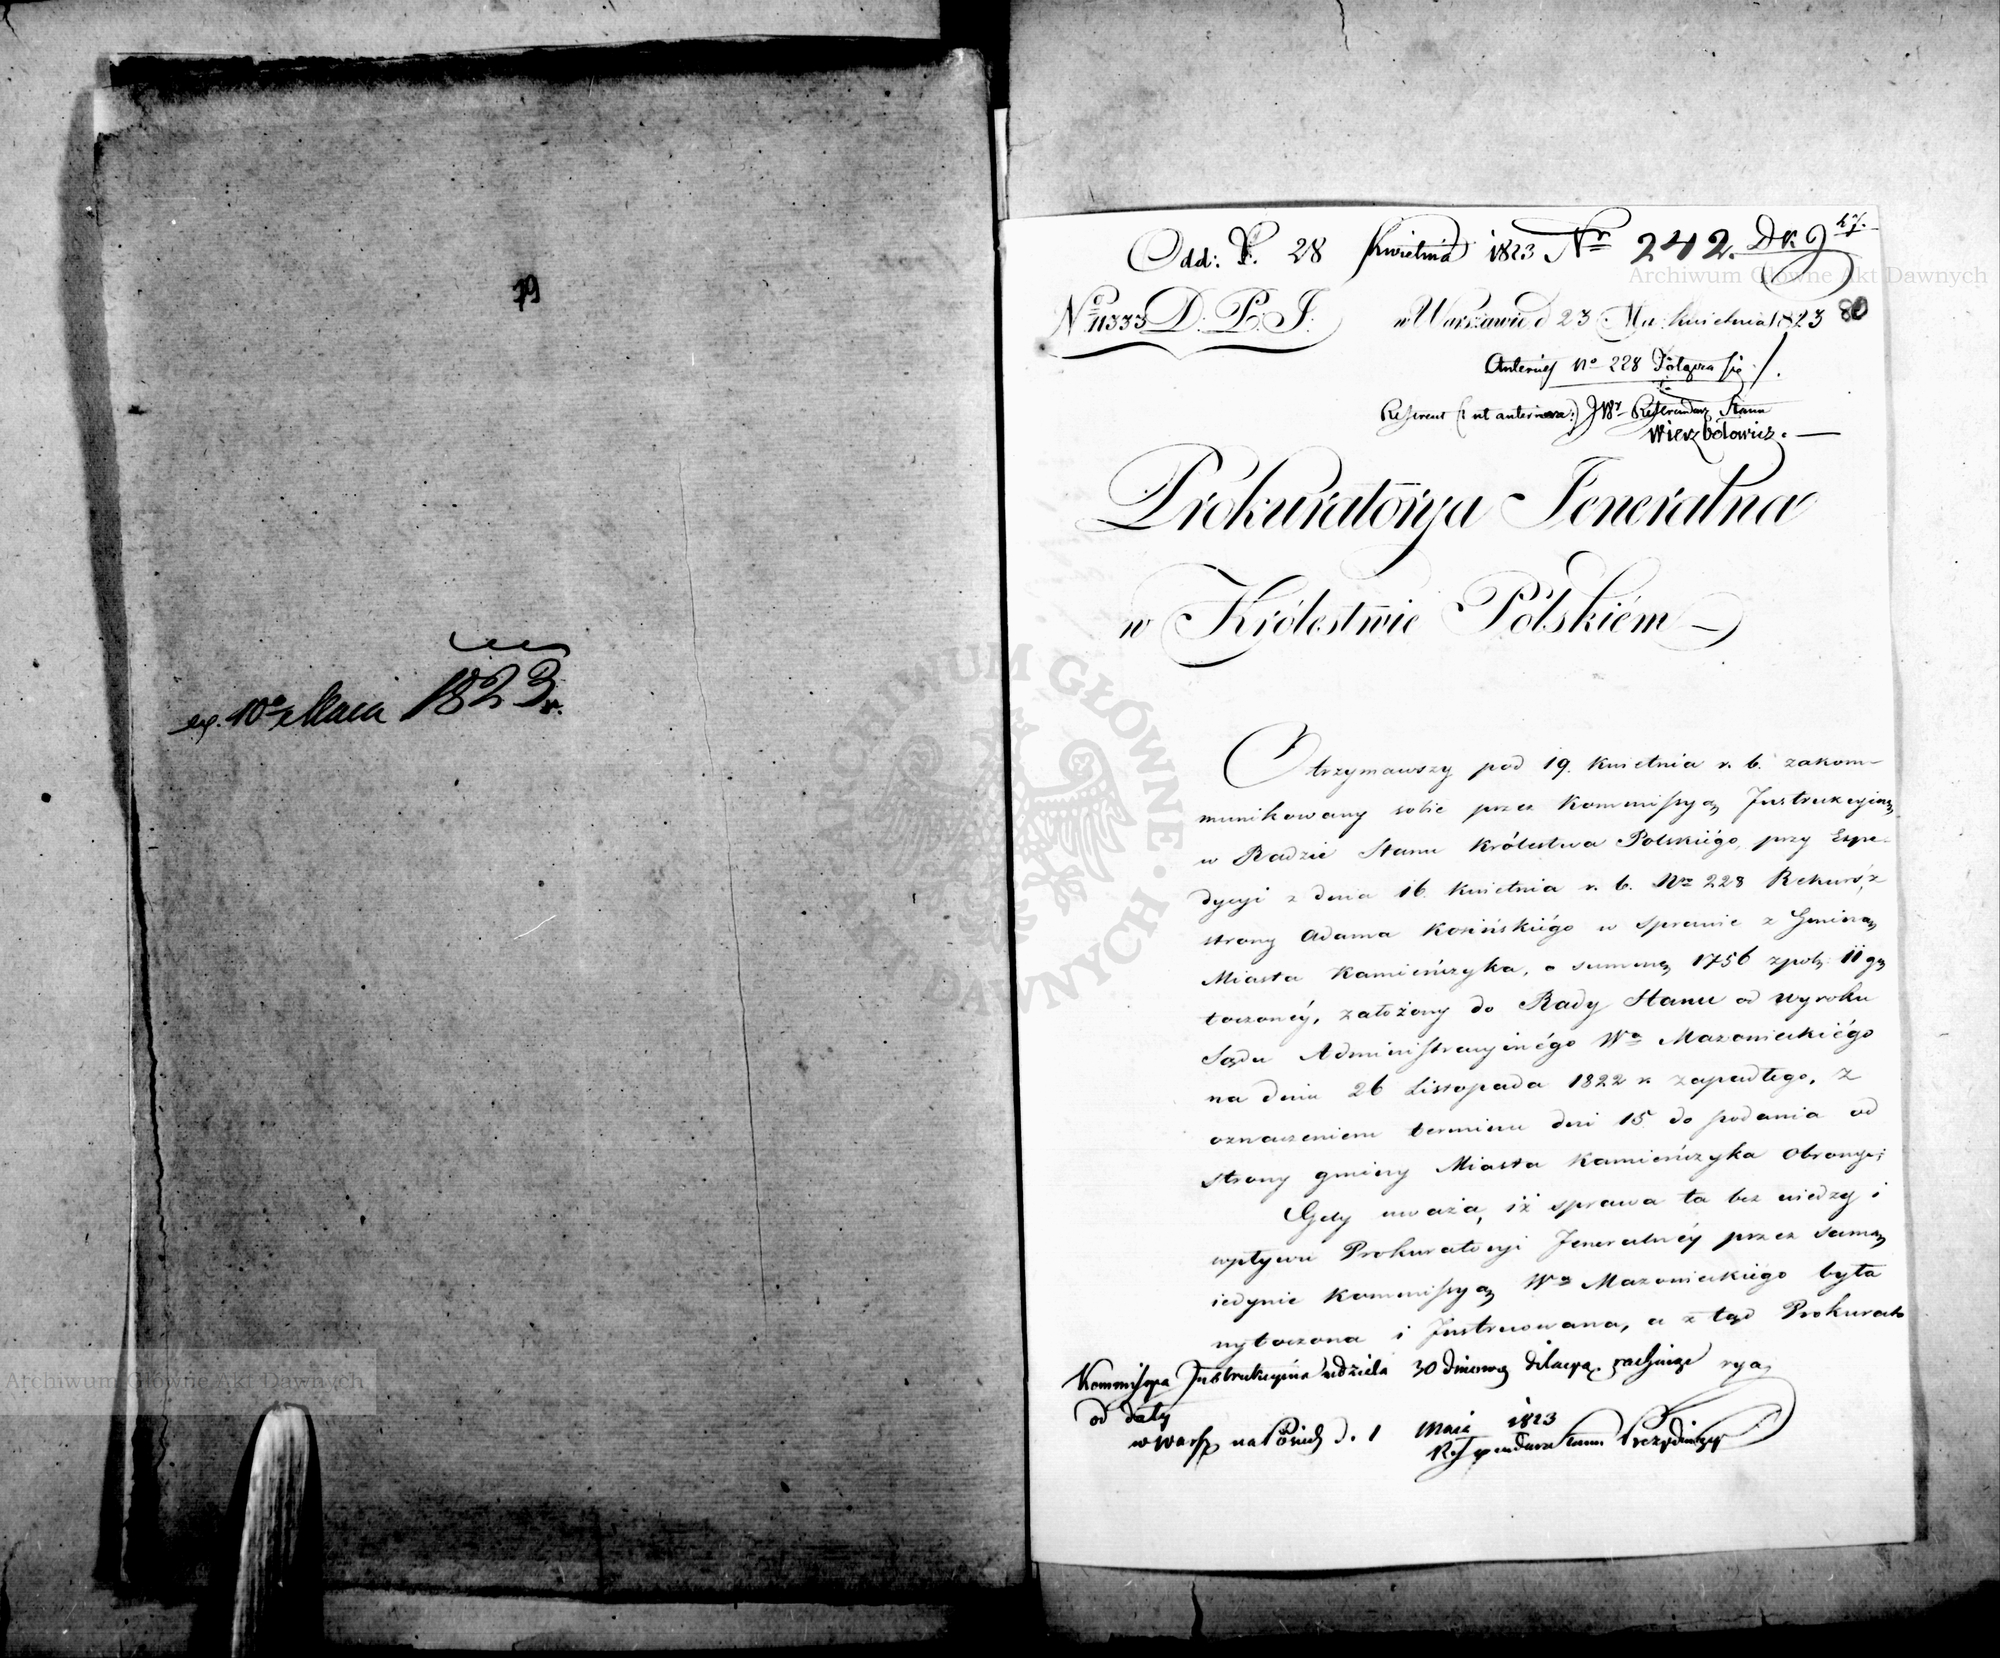 79
ex. 10e Maia 1823 r.
Odd: d. 28 Kwietnia 1823 Nr 242. Dk 9 47.
No 11333 D. P. J. w Warszawie d 23 Ma. kwietnia 1823 80
Anterius No 228 Dołącza się
Referent (: ut anteriora :) JWr Referendarz Stanu
Wierzbołowicz.
Prokuratorya Jeneralna
w Królestwie Polskiém
Otrzymawszy pod 19. Kwietnia r. b. zakom-
munikowany sobie przez Kommissyą Instrukcyiną
w Radzie Stanu Królestwa Polskiégo, przy Expe-
dycyi z dnia 16. Kwietnia r. b. Nro 228 Rekurs, z
strony Adama Kosińskiégo w sprawie z Gminą
Miasta Kamieńczyka, o summę 1756 zpol: 11 gr
toczonéy, założony do Rady Stanu od wyroku
Sądu Administracyinégo Wa Mazowieckiégo
na dniu 26 Listopada 1822 r. zapadłego, z
oznaczeniem terminu dni 15 do podania od
strony gminy Miasta Kamieńczyka Obrony;
Gdy uważa, iż sprawa ta bez wiedzy i
wpływu Prokuratoryi Jeneralnéy przez samą
iedynie Kommissyą Wa Mazowieckiego była
wytoczona i Instruowana, a z tąd Prokurato
rya,
Kommissya Instrukcyina udziela 30 dniową dilacyą rachuiąc
od daty
w Warsz. na Posiedz d. 1 Maia 1823
Referendarz Stanu Prezyduiący